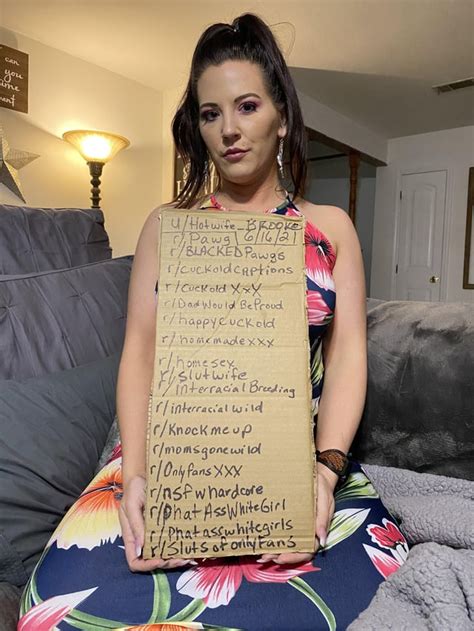 can you
time
ment
u/Hotwife_BROOKE
r/Pawg 6/16/21
r/BLACKEDPawgs
r/cuckoldcaptions
r/cuckoldxxx
r/DadWouldBeProud
r/happycuckold
r/homemadexxx
r/homesex
r/slutwife
r/interracialBreeding
r/interracialwild
r/Knockmeup
r/momsgonewild
r/OnlyfansXXX
r/nsfwhardcore
r/PhatAssWhiteGirl
r/Phatasswhitegirls
r/SlutsofonlyFans